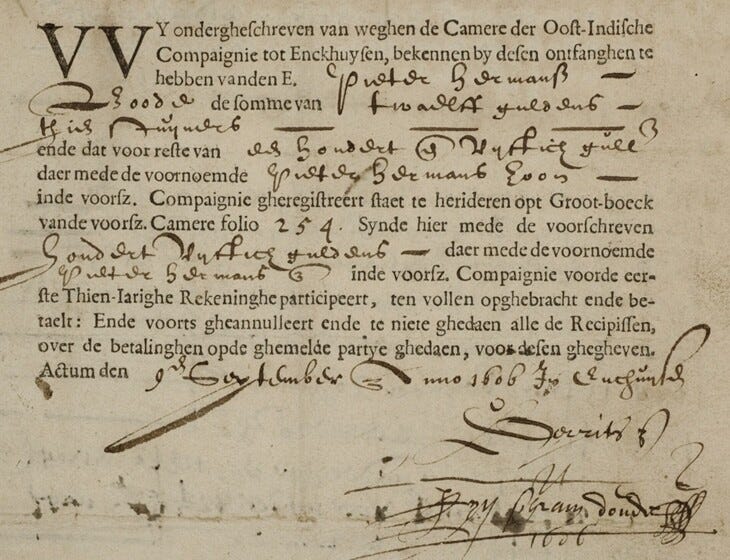 VVY ondergheschreven van weghen de Camere der Oost-Indische
Compaignie tot Enckhuysen, bekennen by desen ontfanghen te
hebben vanden E. Pieter Hermansz —
de somme van twaelff guldens —
ende dat voor reste van hondert vyftich gull
daer mede de voornoemde Pieter Hermans zoon —
inde voorsz. Compaignie gheregistreert staet te herideren opt Groot-boeck
vande voorsz. Camere folio 254. Synde hier mede de voorschreven
hondert vyftich guldens — daer mede de voornoemde
Pieter Hermans inde voorsz. Compaignie voorde eer-
ste Thien-Iarighe Rekeninghe participeert, ten vollen opghebracht ende be-
taelt: Ende voorts gheannulleert ende te niete ghedaen alle de Recipissen,
over de betalinghen opde ghemelde partye ghedaen, voor desen ghegheven.
Actum den 9en September Anno 1606 In
Gerritsz
1606